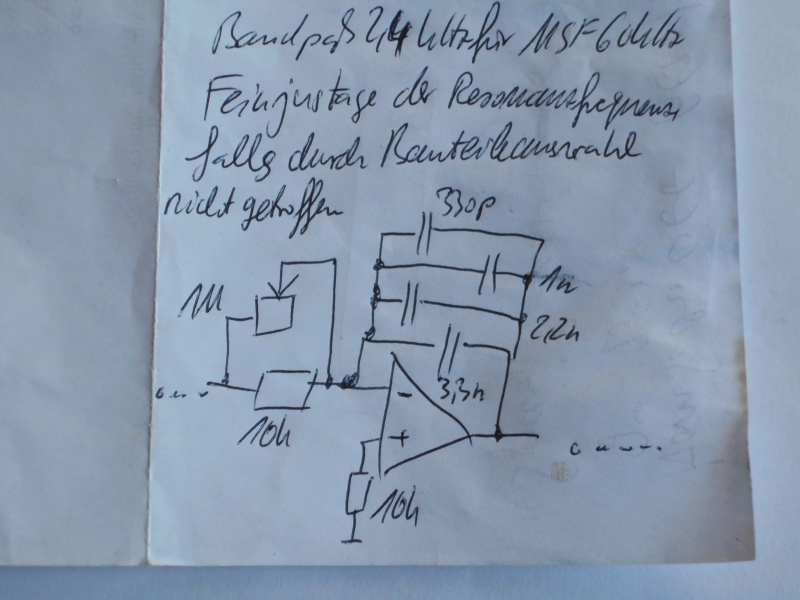 Bandpaß 2,4 kHz für MSF 60kHz
Feinjustage der Resonanzfrequenz,
falls durch Bauteileauswahl
nicht getroffen
330p
1M
1n
2,2n
3,3n
10k
-
+
10k